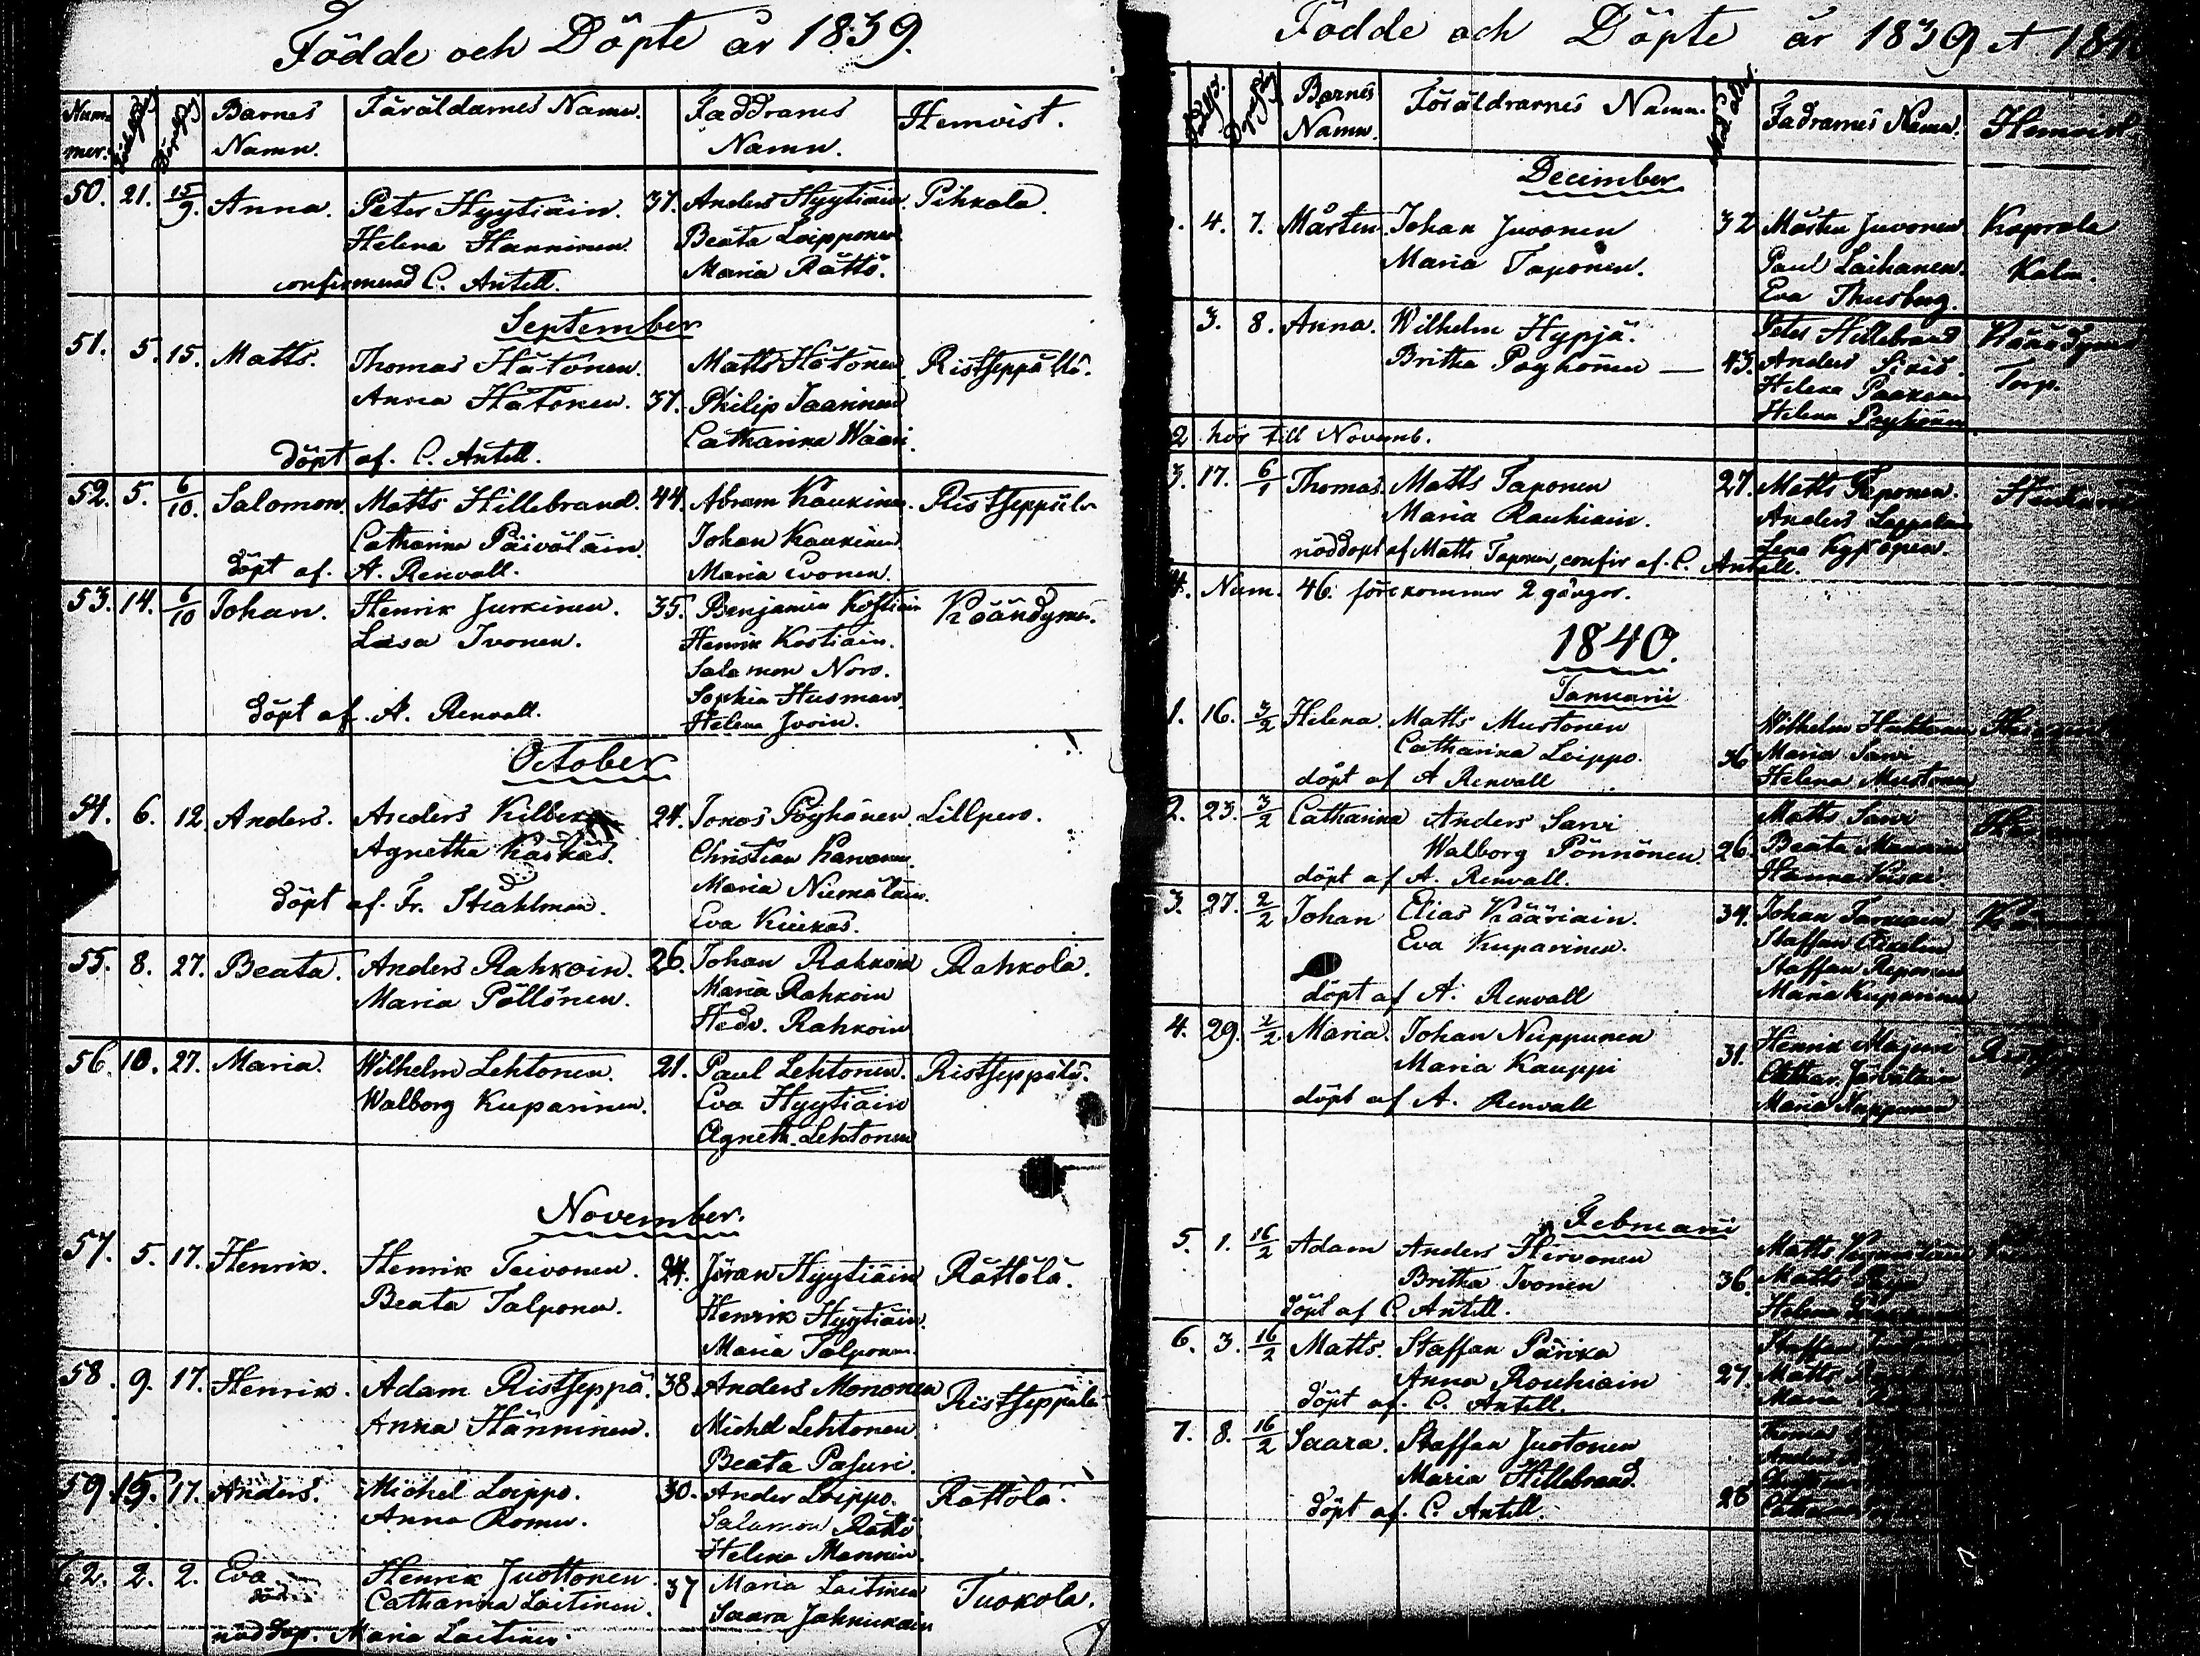 Födde och Döpte år 1839.
Num-
mer.
Barnes
Namn.
Färäldarnes Namn.
Faddranes
Namn.
Hemvist.
50. 21. 15/9. Anna. Peter Hyytiäin. 37. Anders Hyytiäin. Pihkala.
Helena Hänninen. Beata Loipponen
confirmerad C. Antell. Maria Rättö.
September
51. 5. 15. Matts. Thomas Hätönen. Matts Hätönen Ristseppälä.
Anna Hätönen. 37. Philip Jaarinen
Catharina Wääri
döpt af. C. Antell.
52. 5. 6/10. Salomon. Matts Hillebrand. 44. Abram Kaukinen. Ristseppälä
Catharina Päiväläin. Johan Kaukinen
döpt af. A. Renvall. Maria Evonen.
53. 14. 6/10 Johan. Henrik Jurkinen. 35. Benjamin Kostiain Käändymä.
Lisa Ivonen. Henrik Kostiain.
Salamon Noro.
Sophia Husman
döpt af. A. Renvall. Helena Ivoin.
October
54. 6. 12. Anders. Anders Kilberg 24. Jonas Pöyhönen. Lillpero.
Agnetha Kaskas. Christian Karvonen.
Maria Niemäläin.
döpt af. Fr. Strahlman. Eva Kiikas.
55. 8. 27. Beata. Anders Rahkoin. 26. Johan Rahkoin Rahkola.
Maria Pöllönen. Maria Rahkoin
Hedv. Rahkoin
56. 10. 27. Maria. Wilhelm Lehtonen. 21. Paul Lehtonen. Ristseppälä.
Walborg Kuparinen. Eva Hyytiäin
Agneth. Lehtonen
November.
57. 5. 17. Henrik. Henrik Toivonen. 24. Jöran Hyytiäin Rättölä.
Beata Talponen. Henrik Hyytiäin.
Maria Talponen.
58. 9. 17. Henrik. Adam Ristseppä. 38. Anders Mononen Ristseppälä
Anna Hänninen. Michel Lehtonen
Beata Pasuri.
59. 15. 17. Anders. Michel Loippo. 30. Ander Loippo. Rättölä.
Anna Romu. Salamon Rättö
Helena Mannin.
62. 2. 2. Eva Henrik Juottonen 37 Maria Laitinen Tuokola.
död Catharina Laitinen. Saara Jahnukain
nöd döp. Maria Laitinen.
Födde och Döpte år 1839 et 184
Barnes
Namn.
Föräldrarnes Namn.
Fadrarnes Namn.
Hemvist
December
4. 7. Mårten. Johan Juvonen 32 Mårten Juvonen Kaprala
Maria Taponen. Paul Laihanen. Kalm.
Eva Thusberg.
3. 8. Anna. Wilhelm Hypjä. Peter Hillebrand Käändymä
Britha Pöyhönen — 43. Anders Sikiö. Torp.
Helena Paakanen
Helena Pöyhönen
2 hör till Novemb.
3. 17. 6/1 Thomas. Matts Taponen 27. Matts Reponen.
Maria Rauhiain. Anders Lappalain
Lena Kypäpen.
nöddöpt af Matts Taponen, confir af. C. Antell.
4. Num. 46. förekommer 2 gångor.
1840.
Januarii
1. 16. 3/2 Helena. Matts Mustonen Wilhelm Huhtonen
Catharina Loippo. 36 Maria Sarvi
döpt af A Renvall Helena Mustonen
2. 23. 3/2 Catharina Anders Sarvi Matts Sarvi
Walborg Pönnönen. 26. Beata Mannin
döpt af A. Renvall. Hanna
3. 27. 2/2 Johan Elias Kääriäin. 34. Johan Tarkiain
Eva Kuparinen. Staffan
Staffan Reponen
döpt af A. Renvall Maria Kuparinen
4. 29. 2/2 Maria. Johan Nuppunen Henrik Majuri
Maria Kauppi 31. Cathar. Järväläin
döpt af A. Renvall Maria Nuppunen
Februarii
5. 1. 16/2 Adam Anders Hirvonen Matts
Britha Ivonen 36. Matts
döpt af C. Antell. Helena
6. 3. 16/2 Matts. Staffan Pärikä Staffan
Anna Rouhiain 27. Matts
döpt af. C. Antell. Maria
7. 8. 16/2 Saara. Staffan Juotonen Thomas
Maria Hillebrand. Anders
döpt af. C. Antell. 28